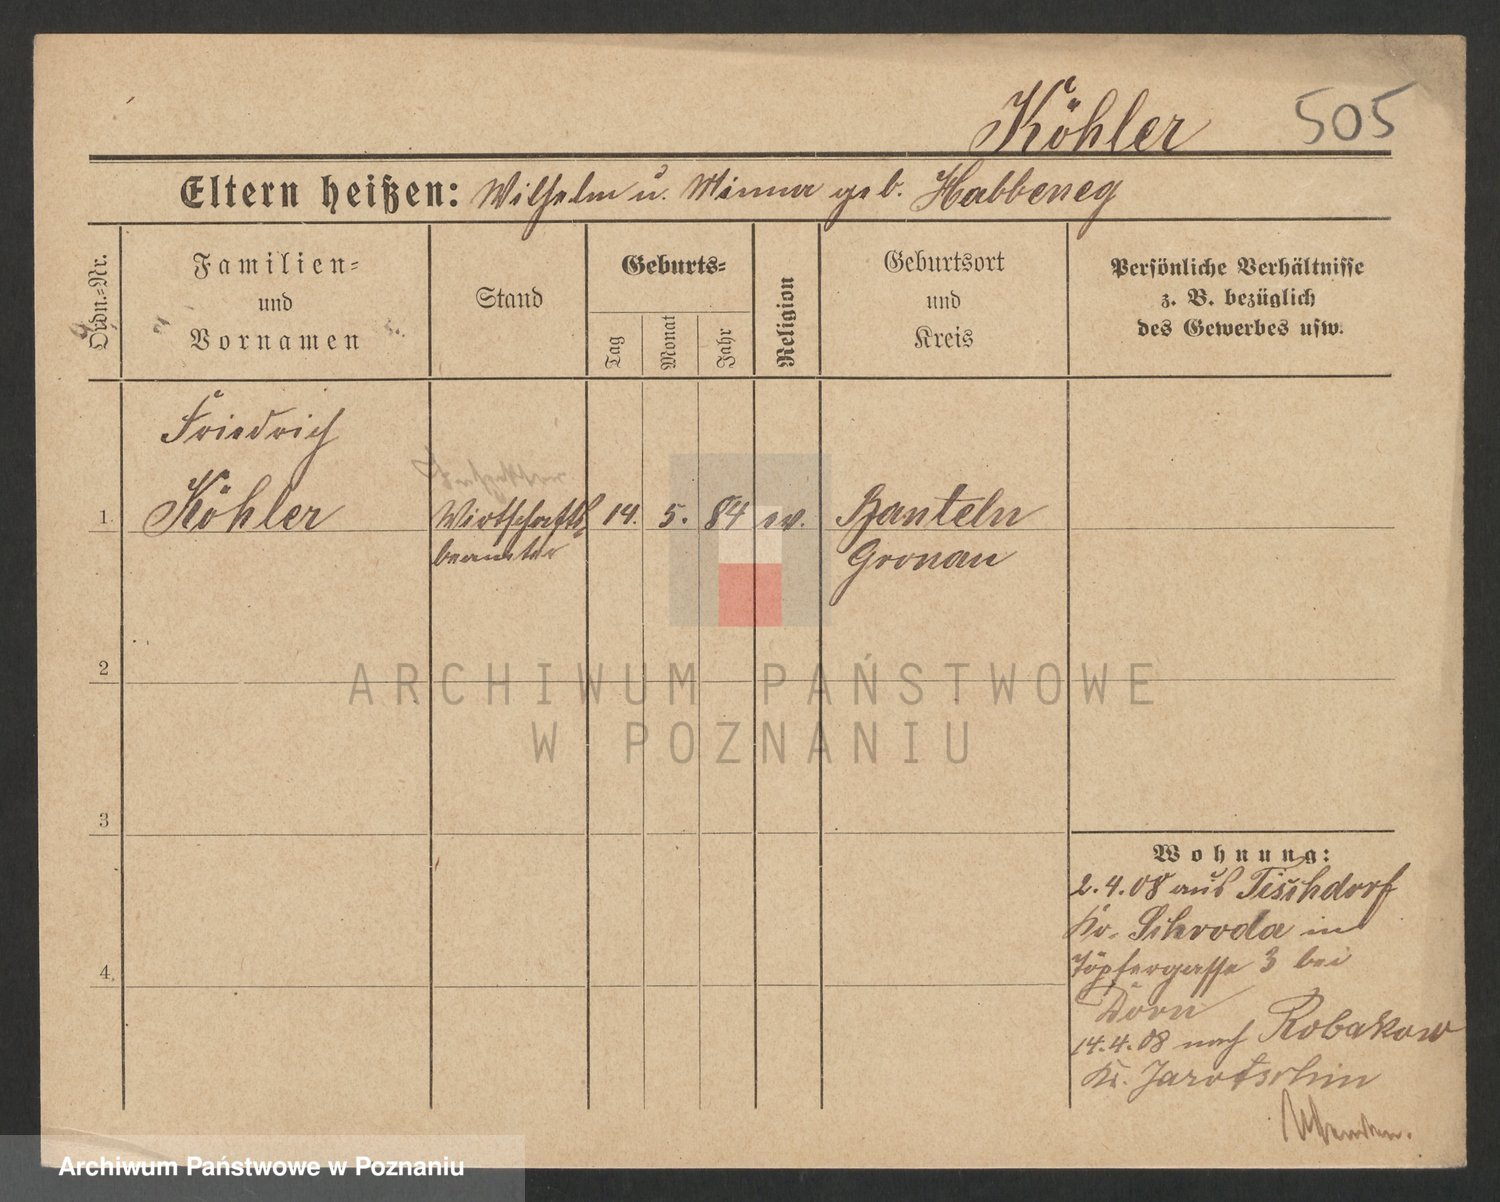 Köhler 505
Eltern heißen: Wilhelm u. Minna geb. Habbeneg
Ordn.-Nr.
Familien-
und
Vornamen
Stand
Geburts-
Tag
Monat
Jahr
Religion
Geburtsort
und
Kreis
Persönliche Verhältnisse
z. B. bezüglich
des Gewerbes usw.
Friedrich
1. Köhler Wirtschafts 14. 5. 84 ev. Banteln
beamter Gronau
2
3
4.
Wohnung:
2.4.08 aus Tischdorf
Kr. Schroda in
Töpfergasse 3 bei
Dorn
14.4.08 nach Robakow
Kr. Jarotschin
ARCHIWUM PAŃSTWOWE
W POZNANIU
Archiwum Państwowe w Poznaniu